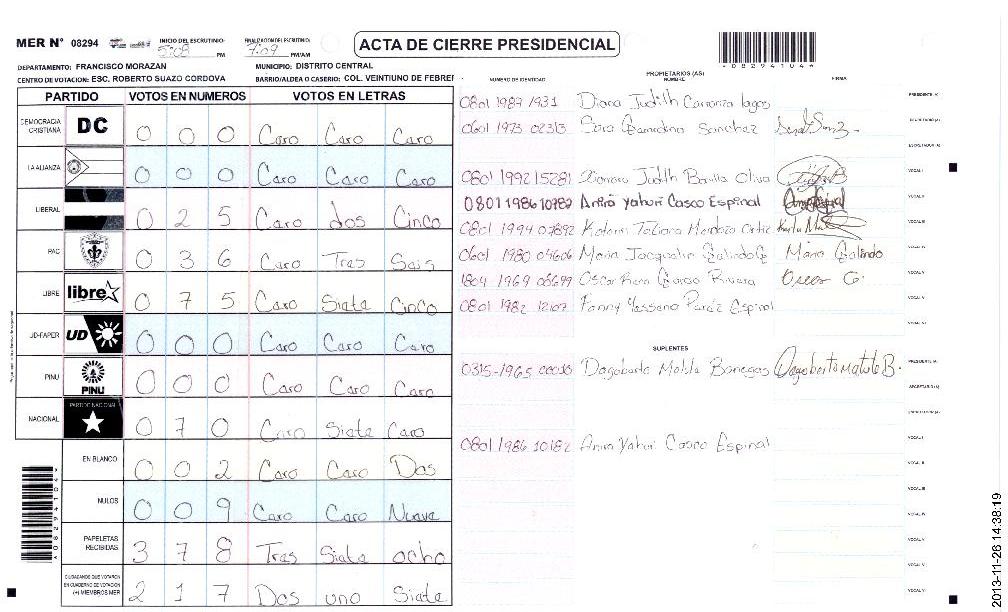 MER Nº 08294 INICIO DEL ESCRUTINIO: 5:08 PM FINALIZACION DEL ESCRUTINIO: 7:09 PM/AM
ACTA DE CIERRE PRESIDENCIAL
082941044
DEPARTAMENTO: FRANCISCO MORAZAN MUNICIPIO: DISTRITO CENTRAL
CENTRO DE VOTACION: ESC. ROBERTO SUAZO CORDOVA BARRIO/ALDEA O CASERIO: COL. VEINTIUNO DE FEBRER
PARTIDO VOTOS EN NUMEROS VOTOS EN LETRAS
DEMOCRACIA CRISTIANA DC 0 0 0 Caro Caro Caro
LA ALIANZA 0 0 0 Caro Caro Caro
LIBERAL 0 2 5 Caro dos Cinco
PAC 0 3 6 Caro Tras Sais
LIBRE libre 0 7 5 Caro Siata Cinco
UD-FAPER UD 0 0 0 Caro Caro Caro
PINU PINU 0 0 0 Caro Caro Caro
NACIONAL PARTIDO NACIONAL 0 7 0 Caro Siata Caro
EN BLANCO 0 0 2 Caro Caro Dos
NULOS 0 0 9 Caro Caro Nuava
PAPELETAS RECIBIDAS 3 7 8 Tras Siata ocho
CIUDADANOS QUE VOTARON EN CUADERNO DE VOTACION (+) MIEMBROS MER 2 1 7 Dos uno Siata
082941044
NUMERO DE IDENTIDAD PROPIETARIOS (AS) NOMBRE FIRMA
0801 1987 1931 Diana Judith Carranza lagos PRESIDENTE (A)
0601 1973 02313 Sara Bernardina Sanchez SECRETARIO (A)
ESCRUTADOR (A)
0801 1992 15281 Judith Bonilla Oliva VOCAL I
0801 1986 10782 Anira Yahori Casco Espinal VOCAL II
0801 1994 07892 Tatiana Mendoza Ortiz VOCAL III
0601 1980 04606 Maria Jacqualin Galindo G Maria Galindo VOCAL IV
1804 1969 03699 Oscar Rivera Oscar G VOCAL V
0801 1982 12107 Fanny Yassania Paraz Espinal VOCAL VI
SUPLENTES
0315-1965 00010 Dagoberto Matute Banegas Dagoberto Matute B. PRESIDENTE (A)
SECRETARIO (A)
ESCRUTADOR (A)
0801 1986 10182 Anira Yahori Casco Espinal VOCAL I
VOCAL II
VOCAL III
VOCAL IV
VOCAL V
VOCAL VI
2013-11-26 14:38:19